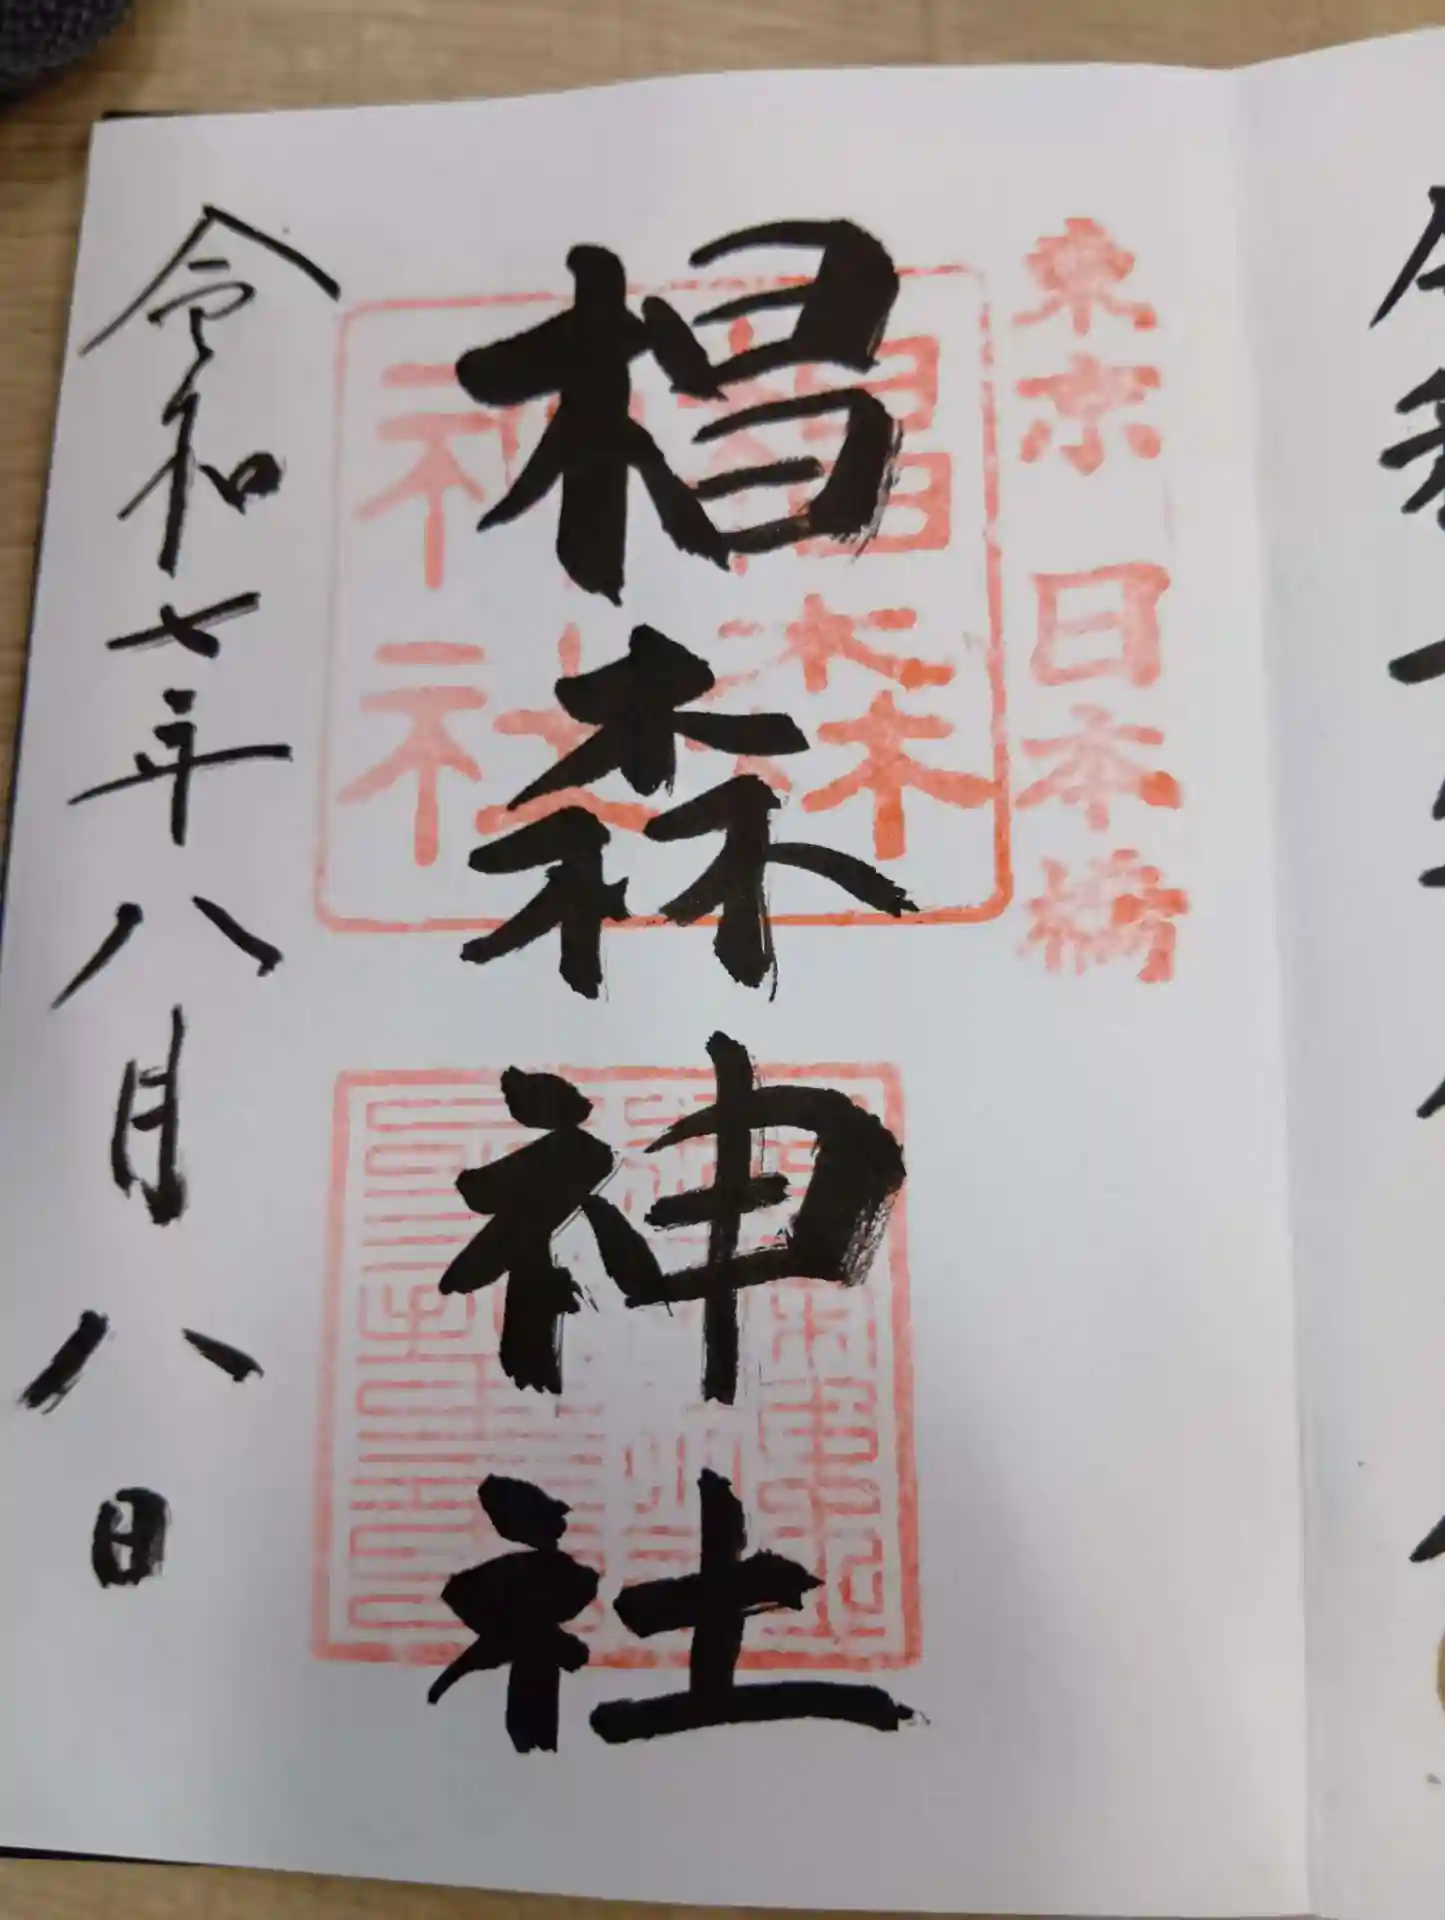 東京 日本橋
椙森神社
椙森
神社
令和七年八月八日